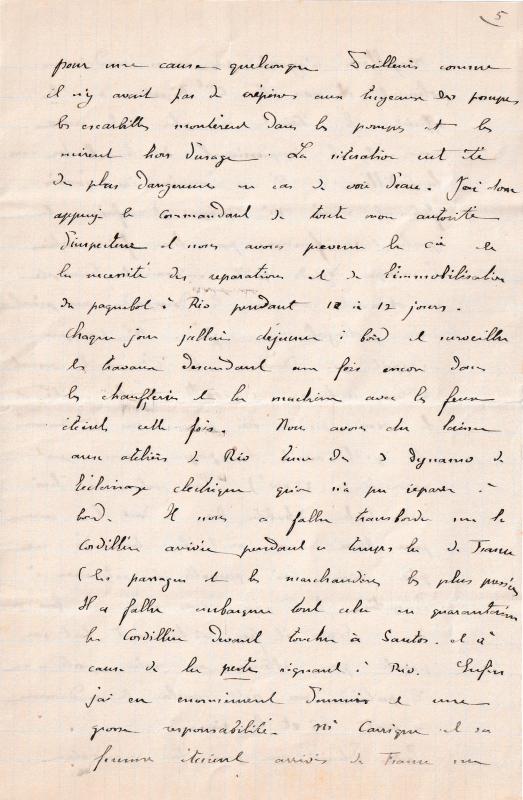 5
pour une cause quelconque D'ailleurs comme
il n'y avait pas de crépines aux tuyeaux des pompes
les escarbilles montèrent dans les pompes et les
mirent hors d'usage. La situation eut été
des plus dangereuses en cas de voie d'eau. J'ai donc
appuyé le commandant de toute mon autorité
d'inspecteur et nous avons prevenu la Cie de
la necessité des reparations et de l'immobilisation
du paquebot à Rio pendant 12 jours.
Chaque jour j'allais déjeuner à bord et surveiller
les travaux descendant une fois encore dans
les chaufferies et la machine avec les feux
éteints cette fois. Nous avons du laisser
aux ateliers de Rio l'une des 3 dynamo de
l'éclairage électrique qu'on n'a pu reparer à
bord. Il nous a fallu transborder sur le
Cordillère arrivée pendant ce temps là de France
(les passagers et les marchandises les plus pressées
Il a fallu embarquer tout cela en quarantaine
le Cordillère devant toucher à Santos. et à
cause de la peste regnant à Rio. Enfin
j'ai eu enormement d'ennuis et une
grosse responsabilité. Mr Carrique et sa
femme étaient arrivés de France